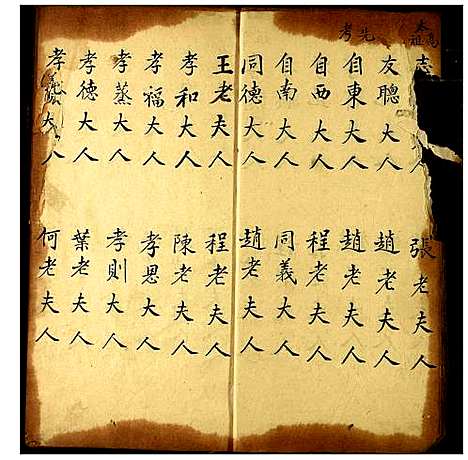 太高祖
先考
志 大人
友聰大人
自東大人
自西大人
自南大人
同德大人
張老夫人
趙老夫人
趙老夫人
程老夫人
同義大人
趙老夫人
王老夫人
孝和大人
孝福大人
孝基大人
孝德大人
孝 大人
程老夫人
陳老夫人
孝恩大人
孝則大人
葉老夫人
何老夫人